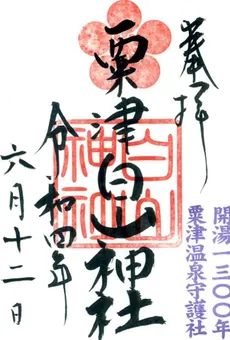 奉拝
開湯一三〇〇年
粟津温泉守護社
粟津白山神社
白山
神社
令和四年
六月十二日